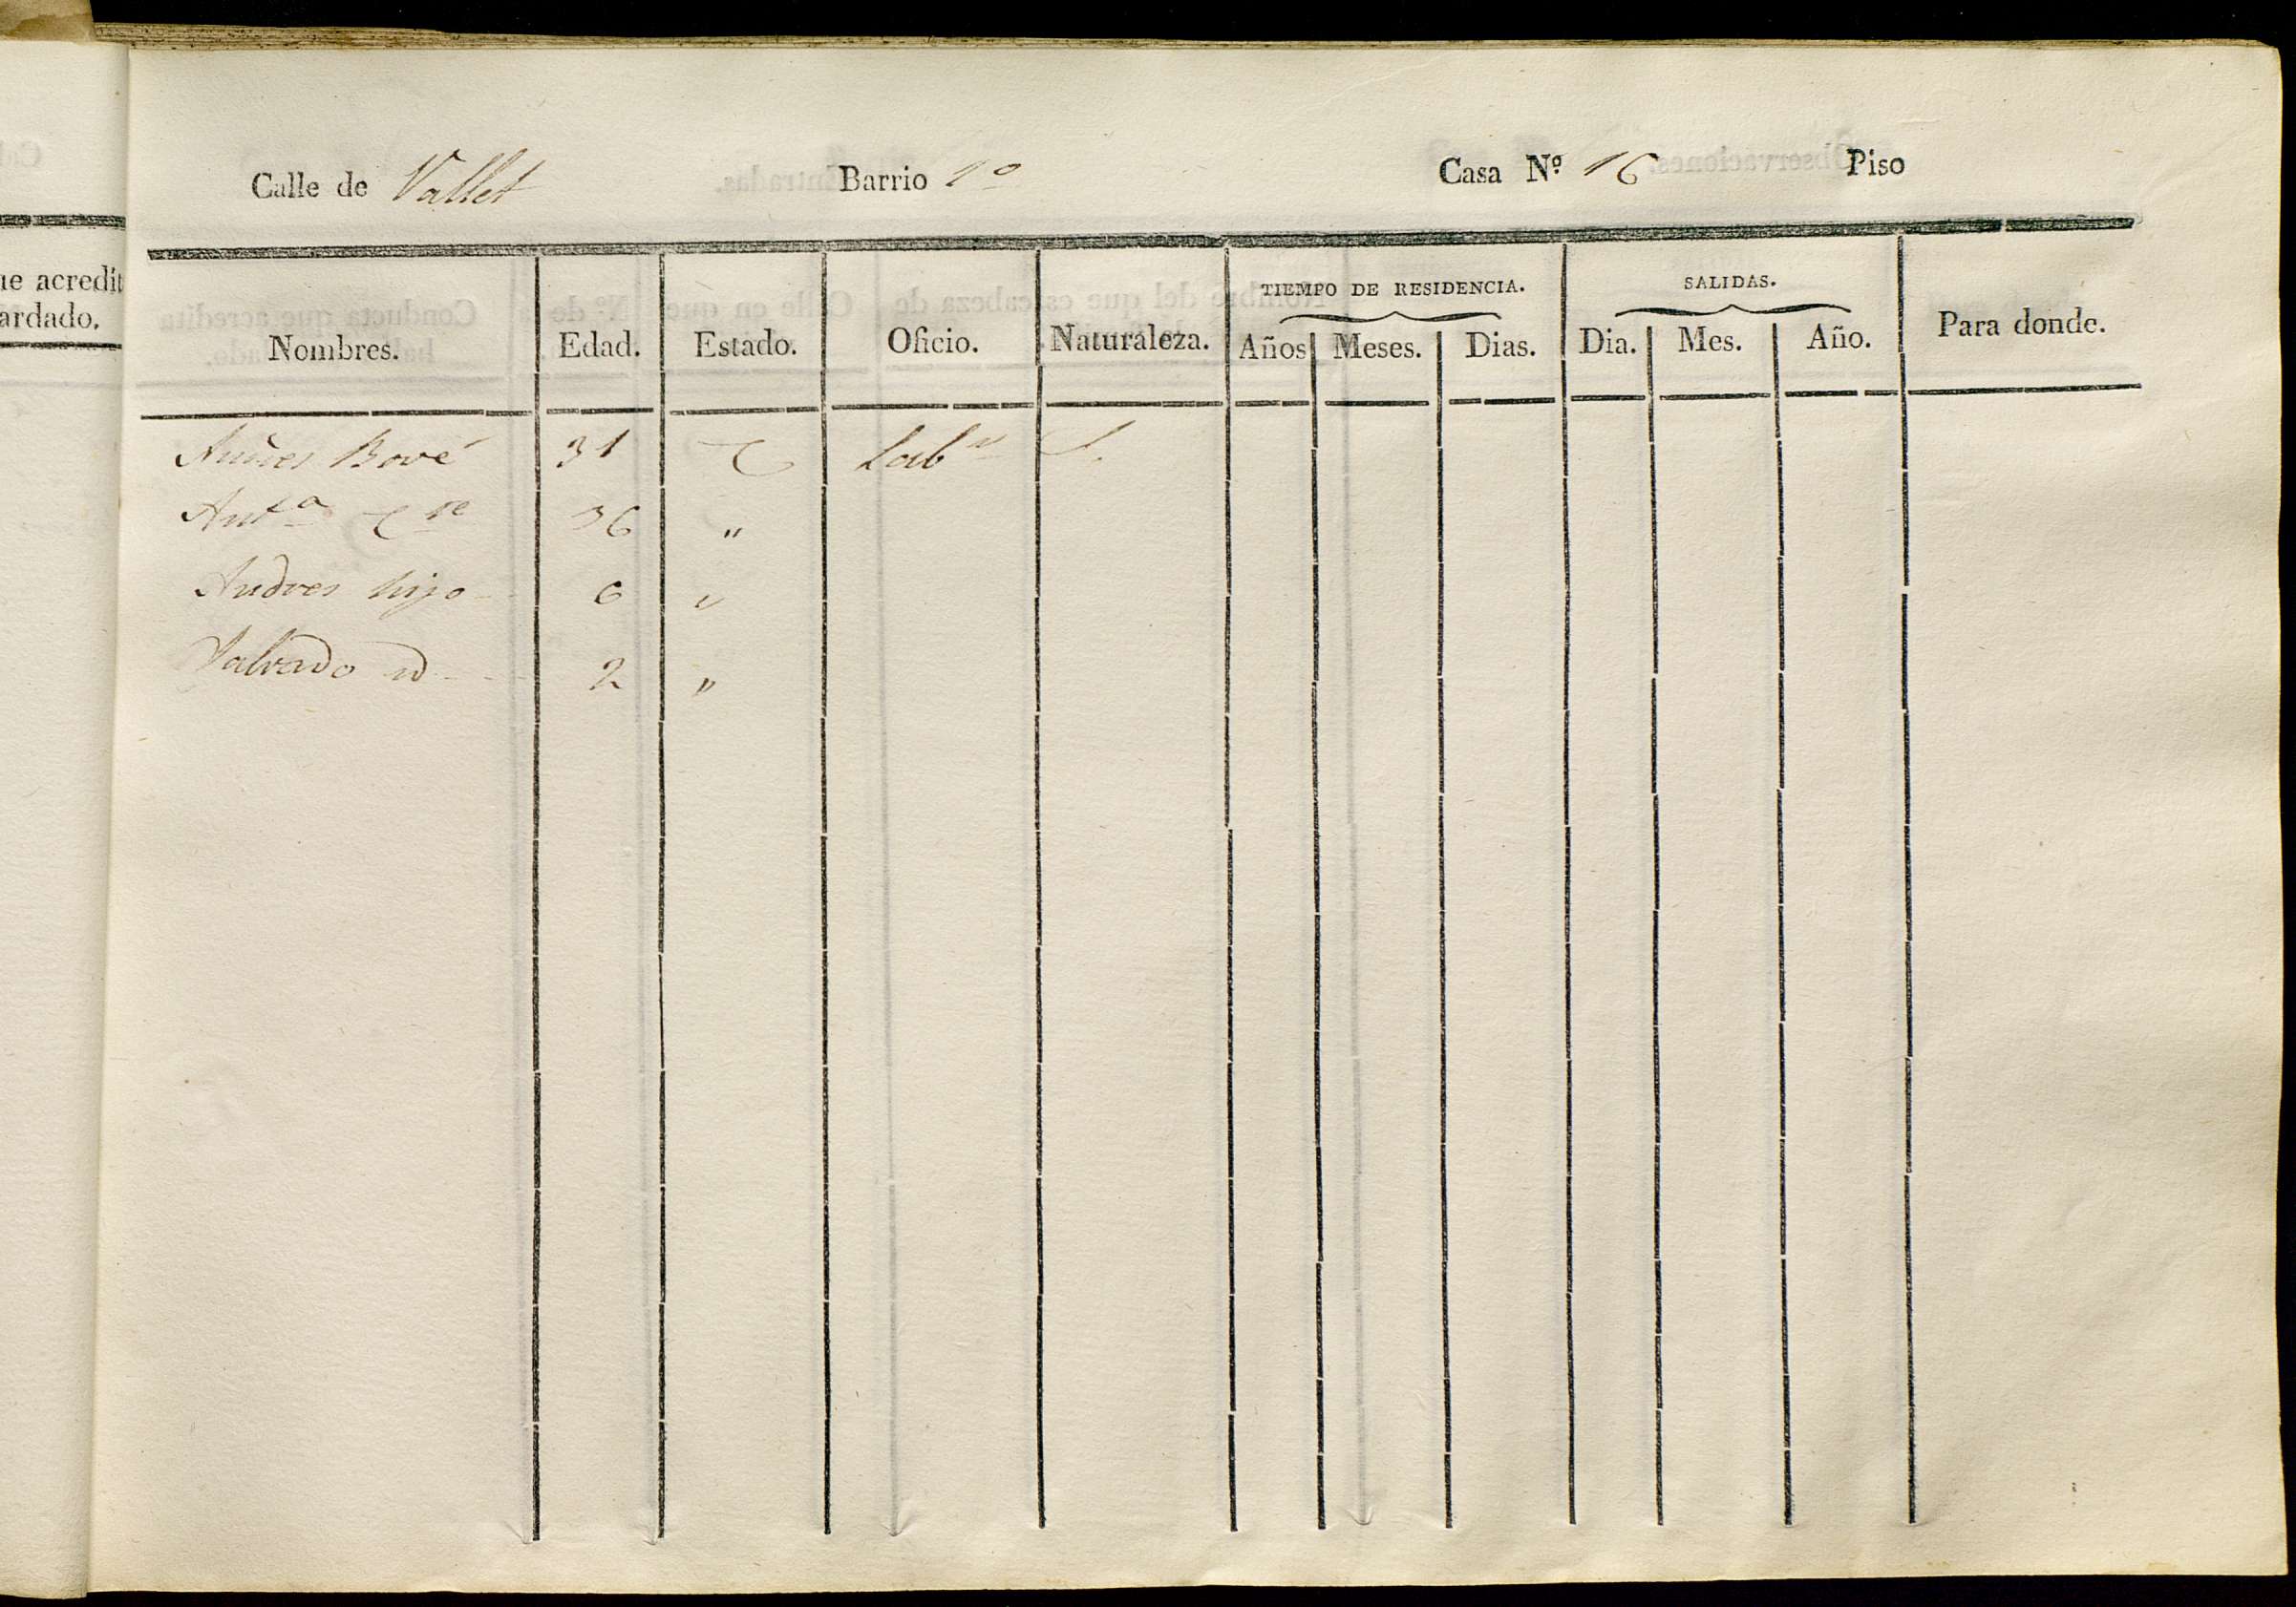 Calle de Vallet Barrio 1º Casa Nº 16 Piso
ue acredit
ardado.
TIEMPO DE RESIDENCIA. SALIDAS.
Nombres. Edad. Estado. Oficio. Naturaleza. Años Meses. Dias. Dia. Mes. Año. Para donde.
Andres Bové 31 C Labr
Anta C 36 "
Andres hijo 6 "
Salvado id 2 "